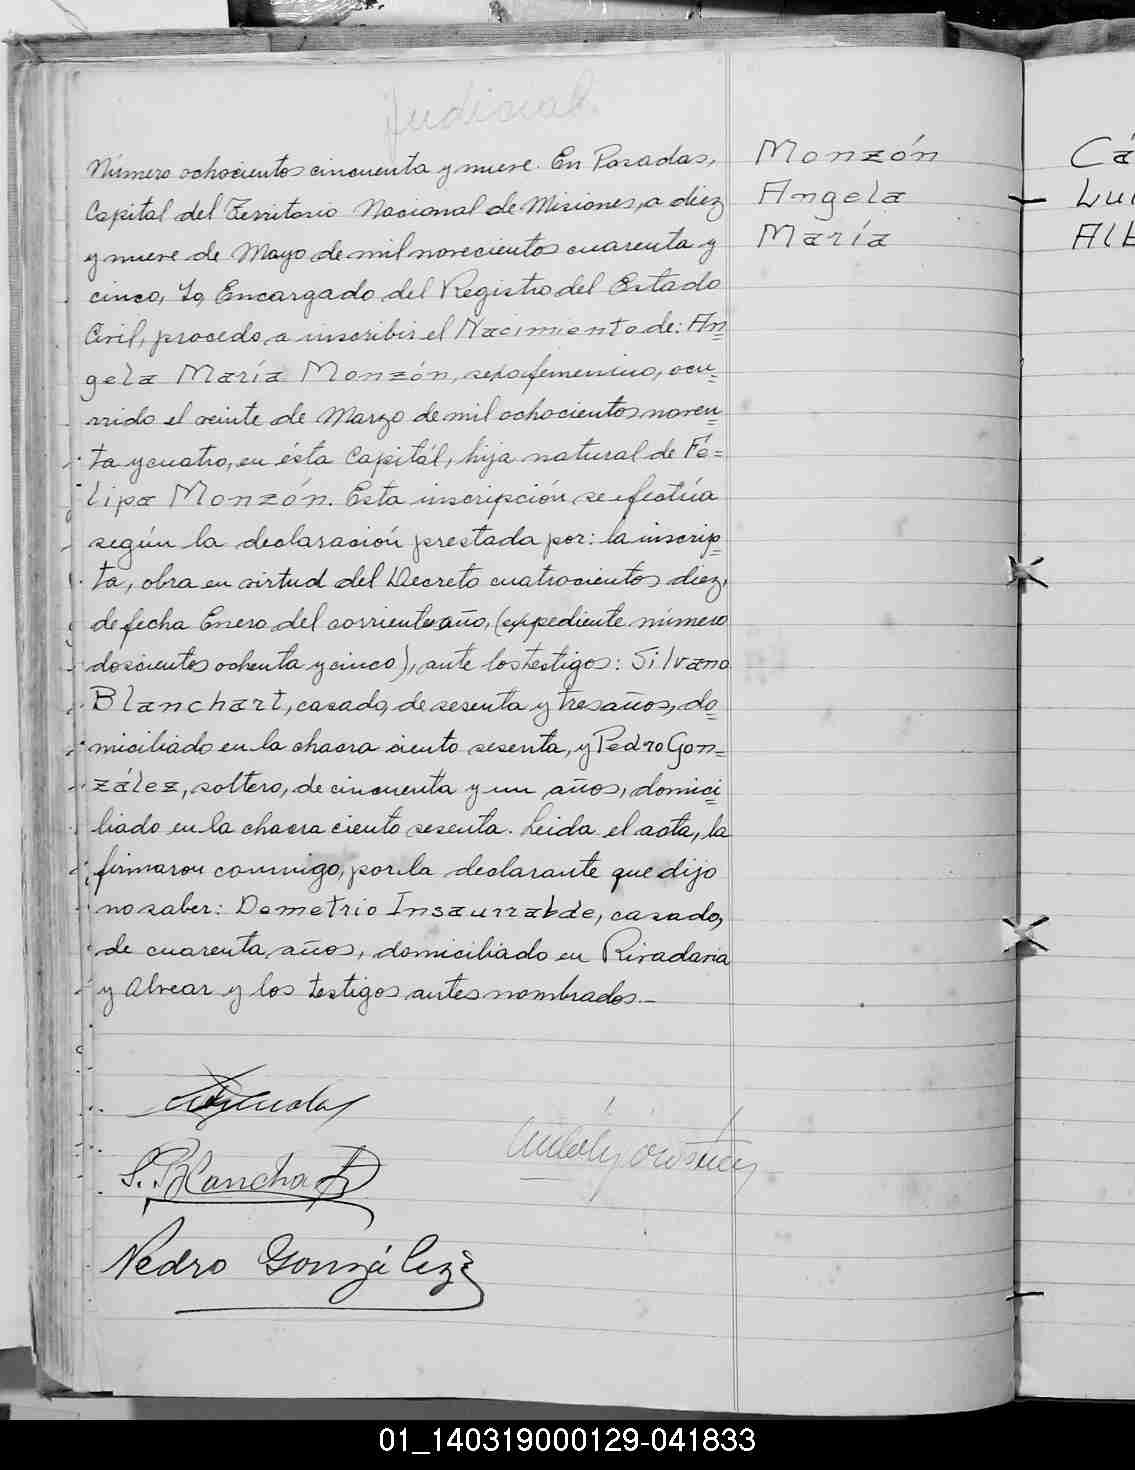 Judicial
Número ochocientos cincuenta y nueve. En Posadas,
Capital del Territorio Nacional de Misiones, a diez
y nueve de Mayo de mil novecientos cuarenta y
cinco, Yo, Encargado del Registro del Estado
Civil, procedo, a inscribir el Nacimiento de: An=
gela María Monzón, sexo femenino, ocu=
rrido el veinte de Marzo de mil ochocientos noven=
ta y cuatro, en ésta Capitál, hija natural de Fé=
lipa Monzón. Esta inscripción, se efectúa
según la declaración prestada por: la inscrip=
ta, obra en virtud del Decreto cuatrocientos diez,
de fecha Enero del corriente año, (expediente número
doscientos ochenta y cinco), ante los testigos: Silvano
Blanchart, casado, de sesenta y tres años, do=
miciliado en la chacra ciento sesenta, y Pedro Gon=
zález, soltero, de cincuenta y un años, domici=
liado en la chacra ciento sesenta. Leida el acta, la
firmaron conmigo, por la declarante que dijo
no saber: Demetrio Insaurralde, casado,
de cuarenta años, domiciliado en Rivadavia
y Alvear y los testigos antes nombrados.—
S. Blanchart
Pedro González
Monzón
Angela
María
Cá
Lui
Alb
01_140319000129-041833